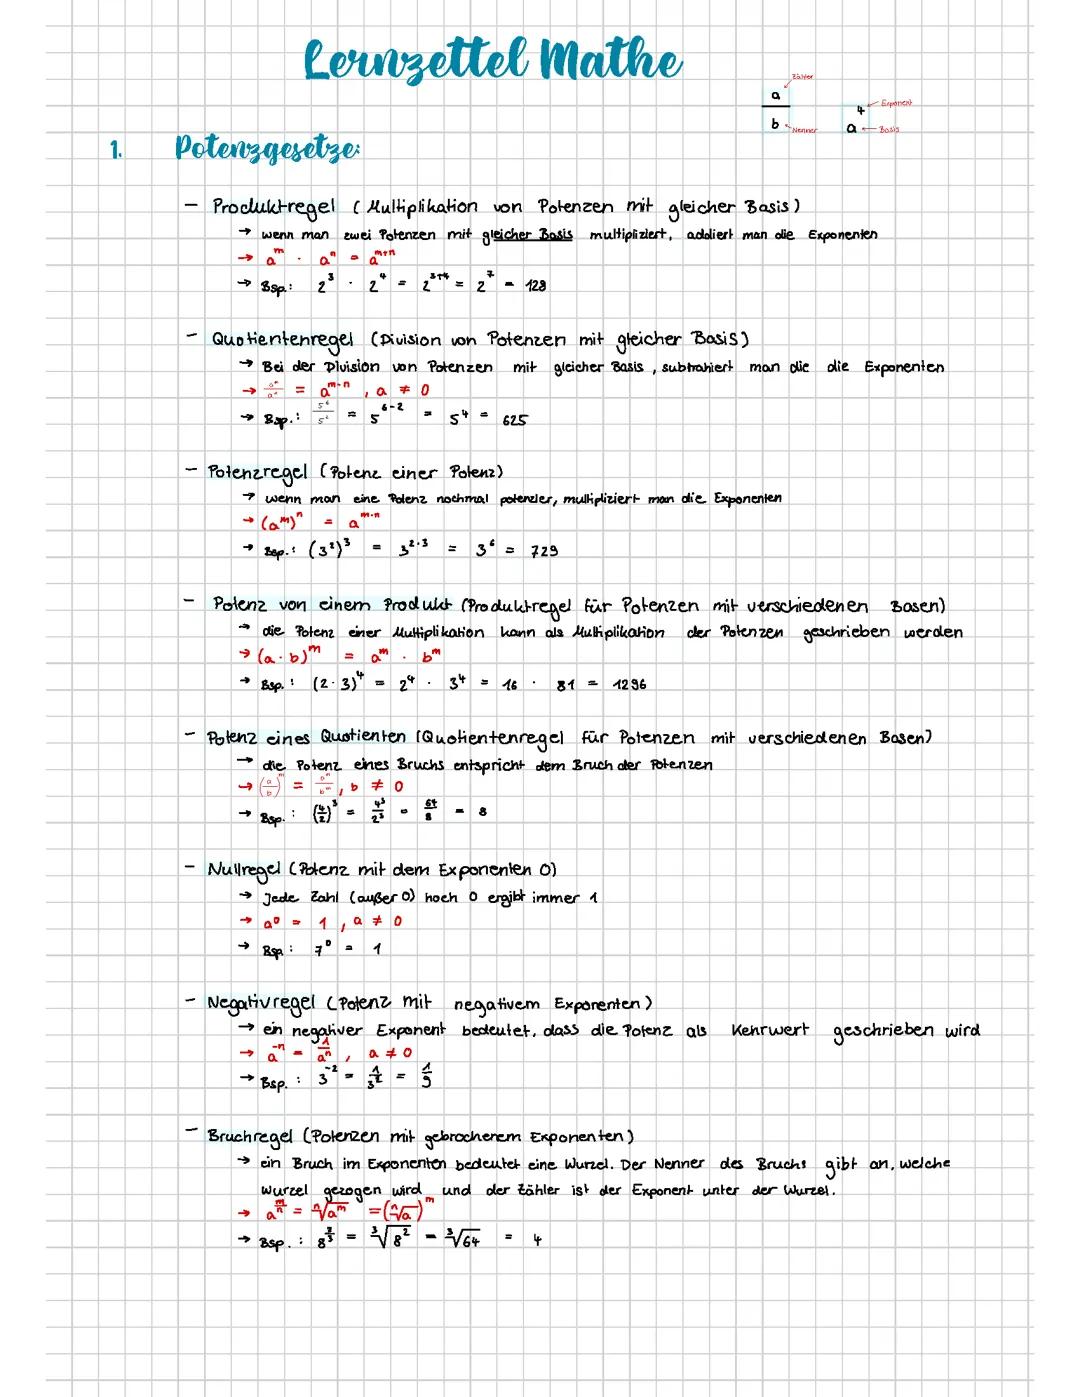 Lernzettel Mathe
a ← Zähler
b ← Nenner
4 ← Exponent
a ← Basis
1. Potenzgesetze:
- Produktregel (Multiplikation von Potenzen mit gleicher Basis)
→ wenn man zwei Potenzen mit gleicher Basis multipliziert, addiert man die Exponenten
→ a^m · a^n = a^(m+n)
→ Bsp.: 2^3 · 2^4 = 2^(3+4) = 2^7 = 128
- Quotientenregel (Division von Potenzen mit gleicher Basis)
→ Bei der Division von Potenzen mit gleicher Basis, subtrahiert man die die Exponenten
→ a^m/a^n = a^(m-n), a ≠ 0
→ Bsp.: 5^6/5^2 = 5^(6-2) = 5^4 = 625
- Potenzregel (Potenz einer Potenz)
→ wenn man eine Potenz nochmal potenzier, multipliziert man die Exponenten
→ (a^m)^n = a^(m·n)
→ Bsp.: (3^2)^3 = 3^(2·3) = 3^6 = 729
- Potenz von einem Produkt (Produktregel für Potenzen mit verschiedenen Basen)
→ die Potenz einer Multiplikation kann als Multiplikation der Potenzen geschrieben werden
→ (a·b)^m = a^m · b^m
→ Bsp.: (2·3)^4 = 2^4 · 3^4 = 16 · 81 = 1296
- Potenz eines Quotienten (Quotientenregel für Potenzen mit verschiedenen Basen)
→ die Potenz eines Bruchs entspricht dem Bruch der Potenzen
→ (a/b)^m = a^m/b^m, b ≠ 0
→ Bsp.: (4/2)^3 = 4^3/2^3 = 64/8 = 8
- Nullregel (Potenz mit dem Exponenten 0)
→ Jede Zahl (außer 0) hoch 0 ergibt immer 1
→ a^0 = 1, a ≠ 0
→ Bsp.: 7^0 = 1
- Negativregel (Potenz mit negativem Exponenten)
→ ein negativer Exponent bedeutet, dass die Potenz als Kehrwert geschrieben wird
→ a^-n = 1/a^n, a ≠ 0
→ Bsp.: 3^-2 = 1/3^2 = 1/9
- Bruchregel (Potenzen mit gebrochenem Exponenten)
→ ein Bruch im Exponenten bedeutet eine Wurzel. Der Nenner des Bruchs gibt an, welche
Wurzel gezogen wird und der Zähler ist der Exponent unter der Wurzel.
→ a^(m/n) = ⁿ√a^m = (ⁿ√a)^m
→ Bsp.: 8^(2/3) = ³√8^2 = ³√64 = 4